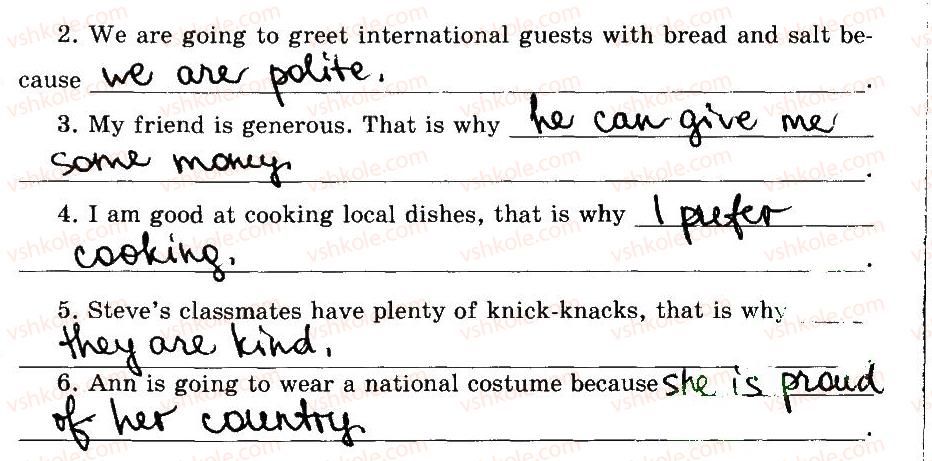 2. We are going to greet international guests with bread and salt be-
cause we are polite.
3. My friend is generous. That is why he can give me
some money.
4. I am good at cooking local dishes, that is why I prefer
cooking.
5. Steve's classmates have plenty of knick-knacks, that is why
they are kind.
6. Ann is going to wear a national costume because she is proud
of her country.